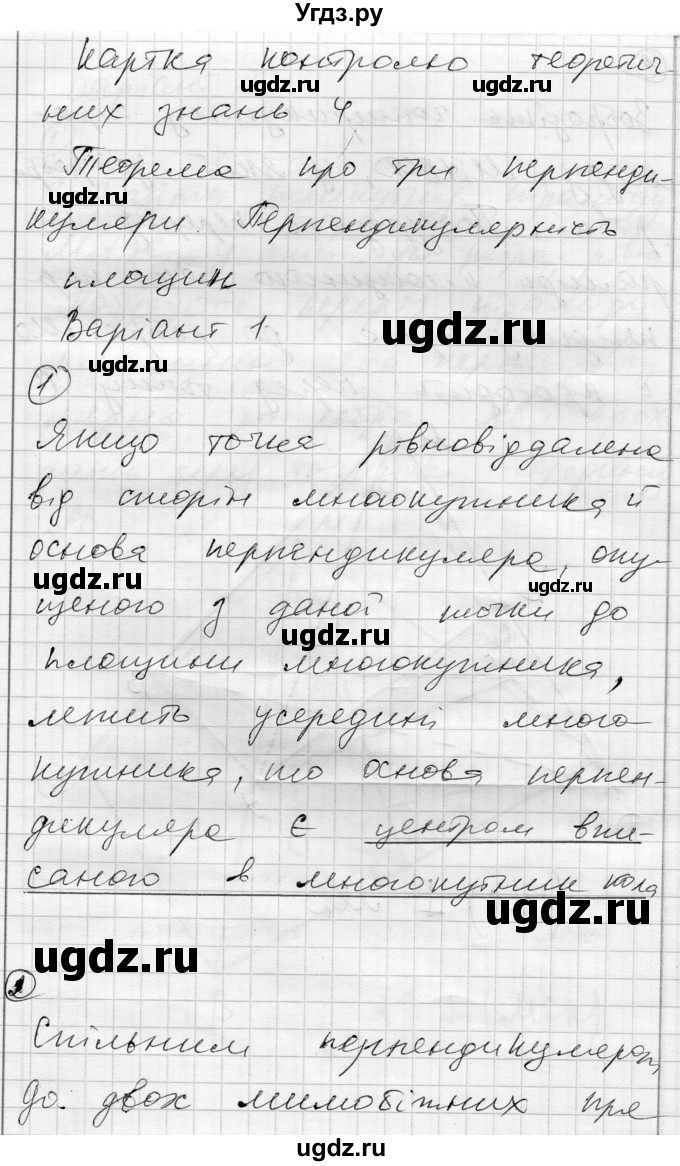 Угдз.ру
картка контролю теоретич-
них знань 4.
Теорема про три перпенди-
куляри. Перпендикулярність
площин
Варіант 1
ugdz.ru
1
Якщо точка рівновіддалена
від сторін многокутника й
основа перпендикуляра, опу-
щеного з даної точки до
площини многокутника,
лежить усередині много-
кутника, то основа перпен-
дикуляра є центром впи-
саного в многокутник кола
ugdz.ru
2
Спільним перпендикуляром
до двох мимобіжних пря
ugdz.ru